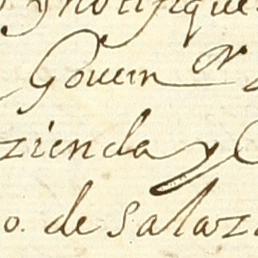 y notifique
Gouern^or
zienda y
o. de salaz